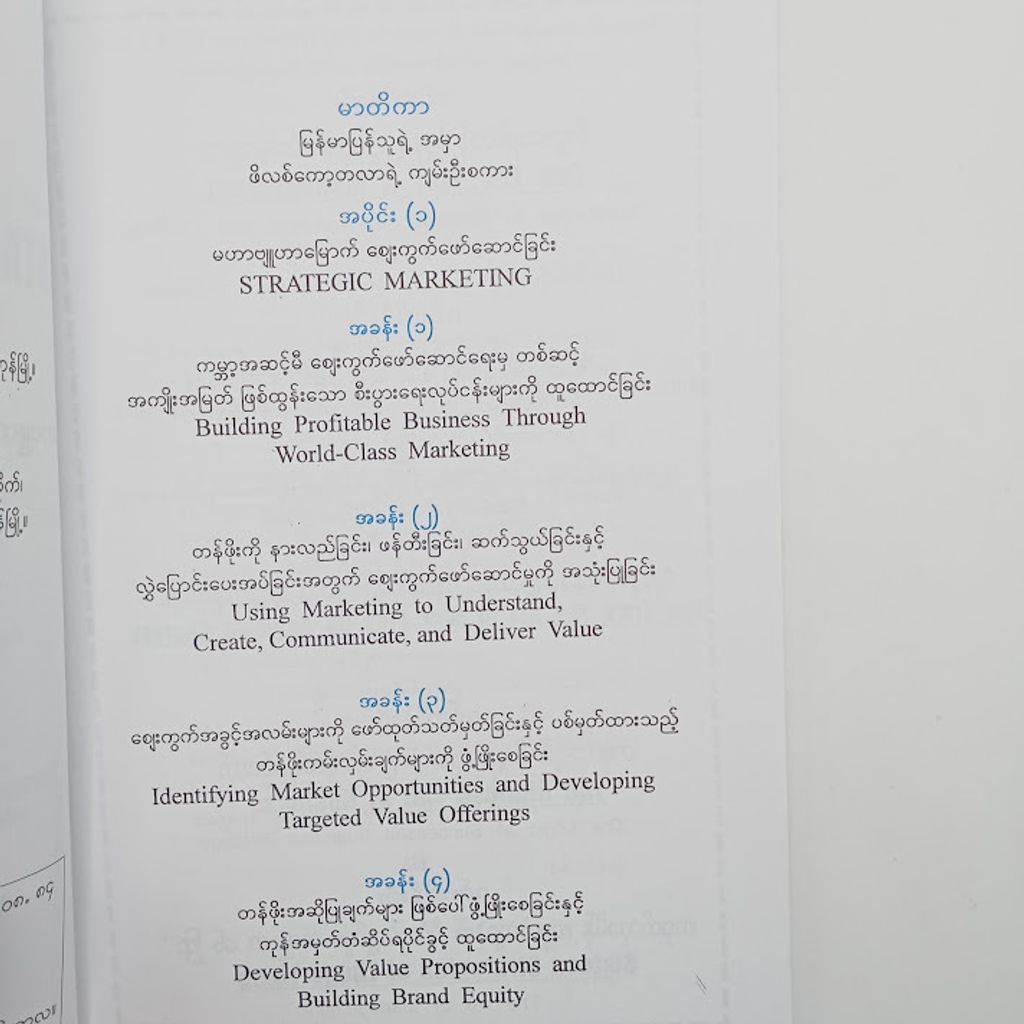 မာတိကာ
မြန်မာပြန်သူရဲ့ အမှာ
ဖိလစ်ကော့တလာရဲ့ ကျမ်းဦးစကား
အပိုင်း (၁)
မဟာဗျူဟာမြောက် ဈေးကွက်ဖော်ဆောင်ခြင်း
STRATEGIC MARKETING
အခန်း (၁)
ကမ္ဘာ့အဆင့်မီ ဈေးကွက်ဖော်ဆောင်ရေးမှ တစ်ဆင့်
အကျိုးအမြတ် ဖြစ်ထွန်းသော စီးပွားရေးလုပ်ငန်းများကို ထူထောင်ခြင်း
Building Profitable Business Through
World-Class Marketing
အခန်း (၂)
တန်ဖိုးကို နားလည်ခြင်း၊ ဖန်တီးခြင်း၊ ဆက်သွယ်ခြင်းနှင့်
လွှဲပြောင်းပေးအပ်ခြင်းအတွက် ဈေးကွက်ဖော်ဆောင်မှုကို အသုံးပြုခြင်း
Using Marketing to Understand,
Create, Communicate, and Deliver Value
အခန်း (၃)
ဈေးကွက်အခွင့်အလမ်းများကို ဖော်ထုတ်သတ်မှတ်ခြင်းနှင့် ပစ်မှတ်ထားသည့်
တန်ဖိုးကမ်းလှမ်းချက်များကို ဖွံ့ဖြိုးစေခြင်း
Identifying Market Opportunities and Developing
Targeted Value Offerings
အခန်း (၄)
တန်ဖိုးအဆိုပြုချက်များ ဖြစ်ပေါ်ဖွံ့ဖြိုးစေခြင်းနှင့်
ကုန်အမှတ်တံဆိပ်ရပိုင်ခွင့် ထူထောင်ခြင်း
Developing Value Propositions and
Building Brand Equity